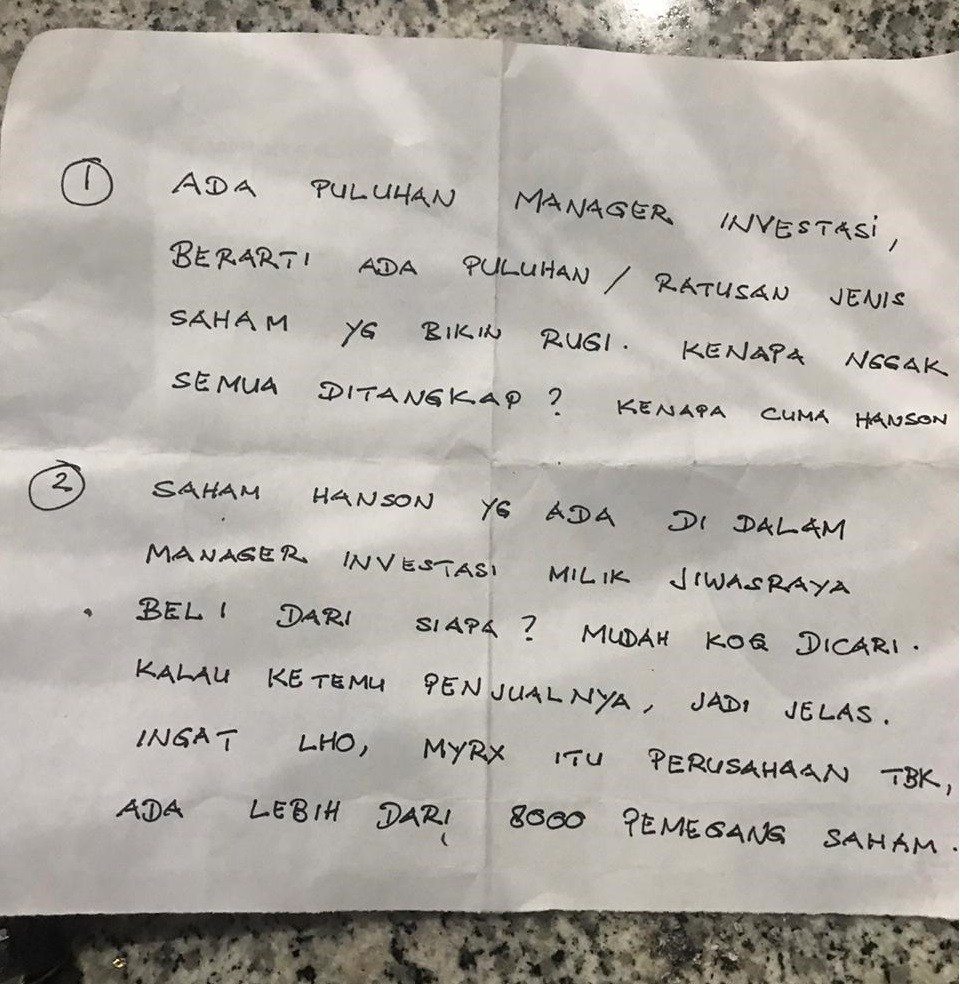 ① ADA PULUHAN MANAGER INVESTASI,
BERARTI ADA PULUHAN / RATUSAN JENIS
SAHAM YG BIKIN RUGI. KENAPA NGGAK
SEMUA DITANGKAP? KENAPA CUMA HANSON
② SAHAM HANSON YG ADA DI DALAM
MANAGER INVESTASI MILIK JIWASRAYA
BELI DARI SIAPA? MUDAH KOQ DICARI.
KALAU KETEMU PENJUALNYA, JADI JELAS.
INGAT LHO, MYRX ITU PERUSAHAAN TBK,
ADA LEBIH DARI 8000 PEMEGANG SAHAM.